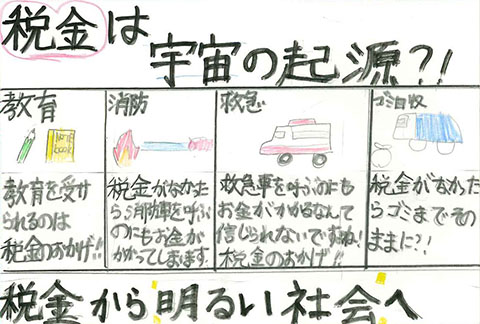 税金は
宇宙の起源?!
教育
NOTE
book
教育を受け
られるのは
税金のおかげ!!
消防
税金がなかった
ら消防車を呼ぶ
のにもお金が
かかってしまいます
救急
救急車を呼ぶのにも
お金がかかるなんて
信じられないですね!
税金のおかげ!!
ゴミ回収
税金がなかった
らゴミまでその
ままに?!
税金から明るい社会へ